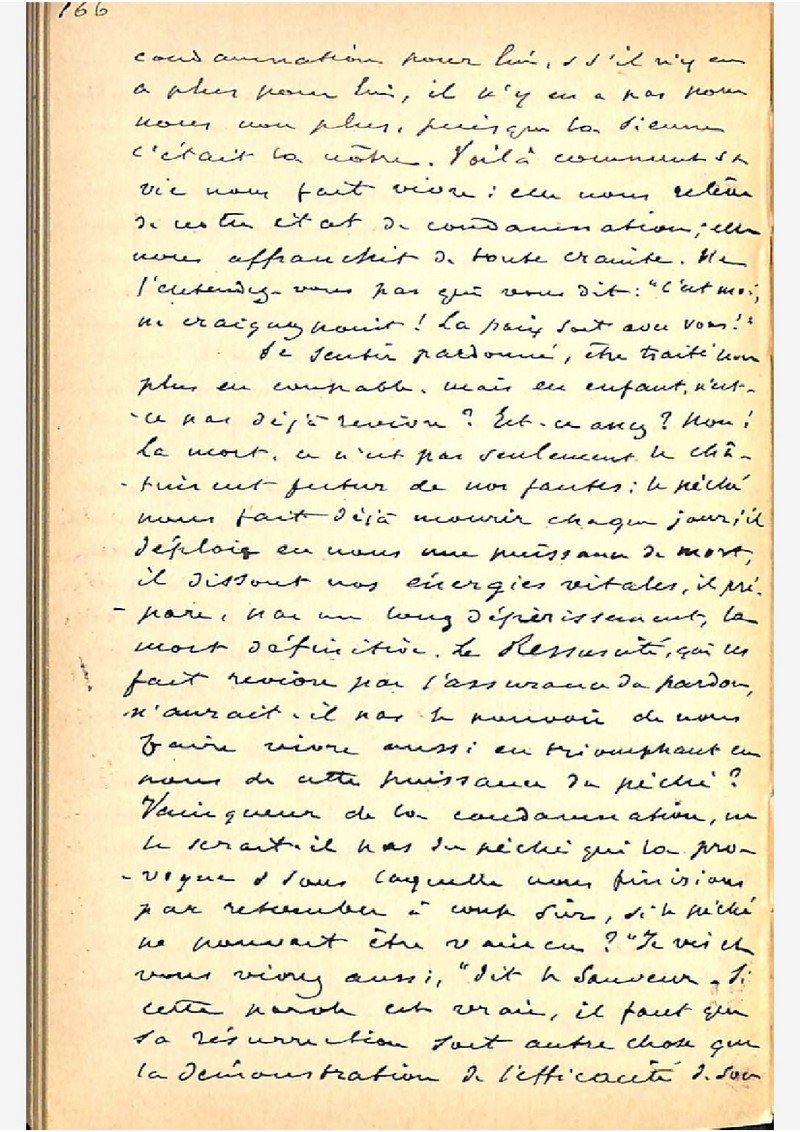 166
condamnation pour lui, & s'il n'y en
a plus pour lui, il n'y en a pas pour
nous non plus, puisque la sienne
c'était la nôtre. Voilà comment sa
vie nous fait vivre : elle nous relève
de notre état de condamnation ; elle
nous affranchit de toute crainte. Ne
l'entendez-vous pas qui vous dit : "C'est moi,
ne craignez point ! La paix soit avec vous !"
Se sentir pardonné, être traité non
plus en coupable, mais en enfant, n'est-
-ce pas déjà revivre ? Est-ce assez ? Non !
La mort, ce n'est pas seulement le châ-
-timent futur de nos fautes : le péché
nous fait déjà mourir chaque jour ; il
déploie en nous une puissance de mort,
il dissout nos énergies vitales, il pré-
-pare, par un long dépérissement, la
mort définitive. Le Ressuscité, qui les
fait revivre par l'assurance du pardon,
n'aurait-il pas le pouvoir de nous
faire vivre aussi en triomphant en
nous de cette puissance du péché ?
Vainqueur de la condamnation, ne
le serait-il pas du péché qui la pro-
-voque & sous laquelle nous finirions
par retomber à coup sûr, si le péché
ne pouvait être vaincu ? "Je vis et
vous vivrez aussi," dit le Sauveur. Si
cette parole est vraie, il faut que
sa résurrection soit autre chose que
la démonstration de l'efficacité de son